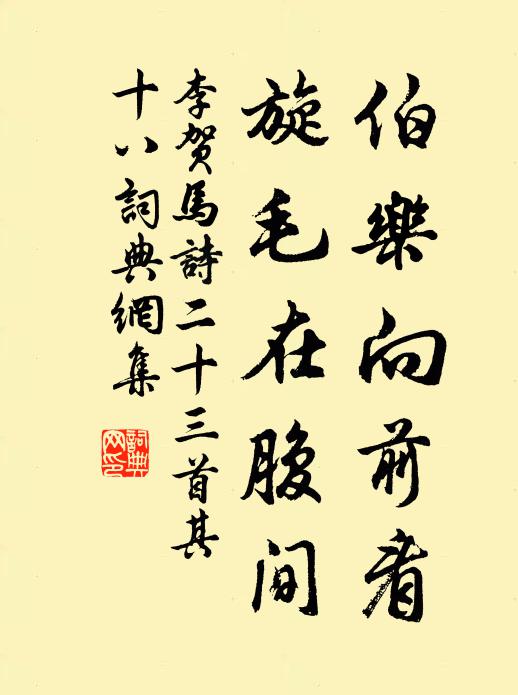 伯樂向前看
旋毛在腹間
李賀馬詩二十三首其
十八詞典網集
詞典
网印